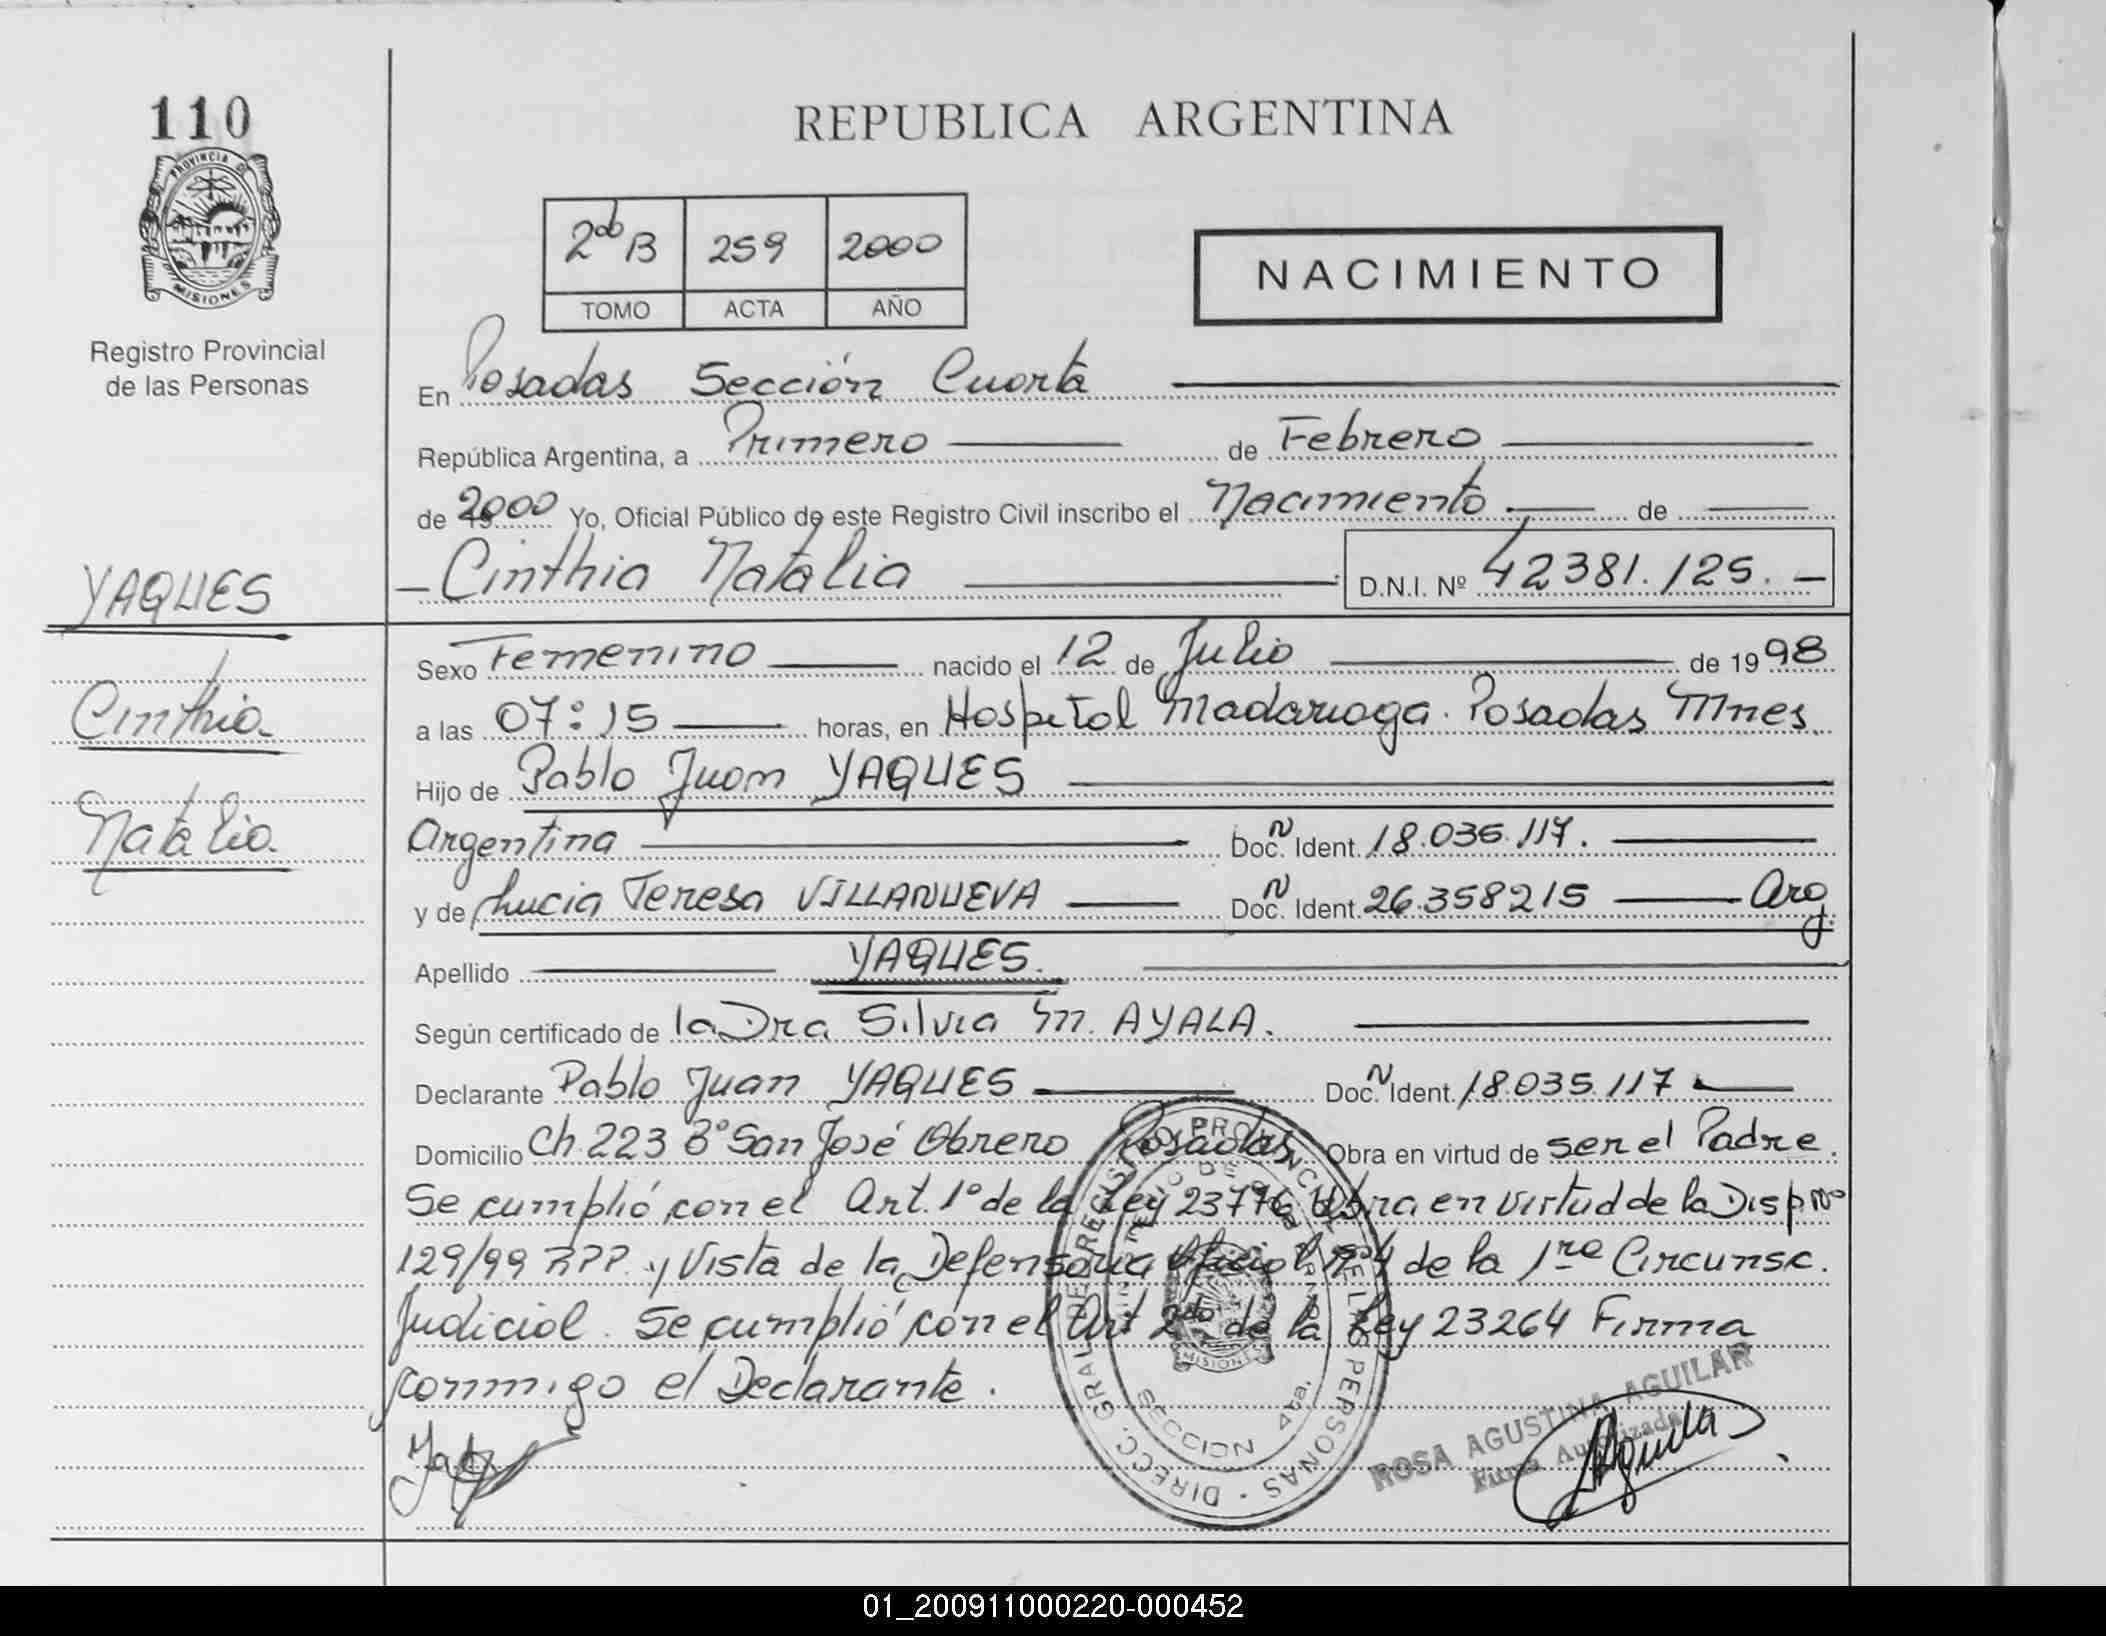 110
PROVINCIA DE
MISIONES
Registro Provincial
de las Personas
REPUBLICA ARGENTINA
2do B 259 2000
TOMO ACTA AÑO
NACIMIENTO
En Posadas Sección Cuarta
República Argentina, a Primero de Febrero
de 2000 Yo, Oficial Público de este Registro Civil inscribo el Nacimiento de
Cinthia Natalia D.N.I. Nº 42381.125.
YAQUES
Cinthia
Natalia
Sexo Femenino nacido el 12 de Julio de 1998
a las 07:15 horas, en Hospital Madariaga. Posadas Mnes.
Hijo de Pablo Juan YAQUES
Argentina Doc. N Ident. 18.035.117.
y de Lucia Teresa VILLANUEVA Doc. N Ident. 26.358215 Arg.
Apellido YAQUES.
Según certificado de la Dra Silvia M. AYALA.
Declarante Pablo Juan YAQUES Doc. N Ident. 18.035.117
Domicilio Ch 223 Bº San José Obrero Posadas Obra en virtud de ser el Padre.
Se cumplió con el Art. 1º de la Ley 23776 Obra en virtud de la Disp Nº
129/99 RPP y Vista de la Defensoria Oficial Nº 4 de la 1ra Circunsc.
Judicial. Se cumplió con el Art 2do de la Ley 23264 Firma
conmigo el Declarante.
DIRECC. GRAL. DE REGISTRO PROVINCIAL DE LAS PERSONAS
MINISTERIO DE
MISIONES
SECCION 4ta.
ROSA AGUSTINA AGUILAR
Firma Autorizada
Aguilar
01_200911000220-000452